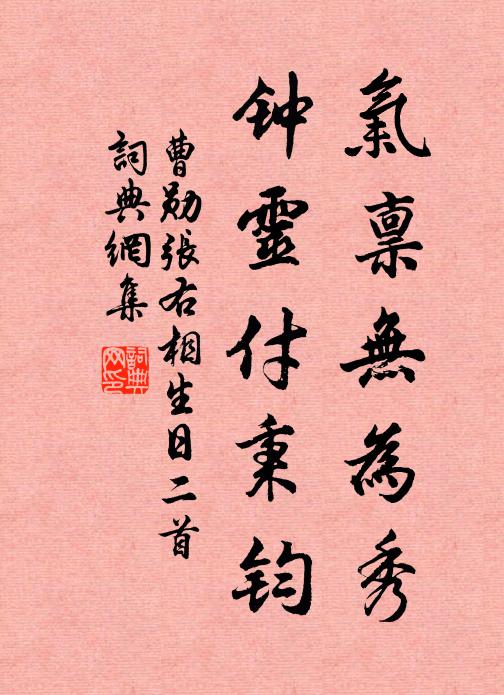 氣禀無為秀
钟靈付秉鈞
曹勋張右相生日二首
詞典網集
詞典網印